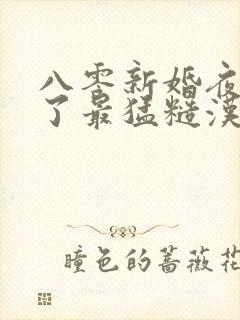 八零新婚夜
了最猛糙漢
瞳色的薔薇花